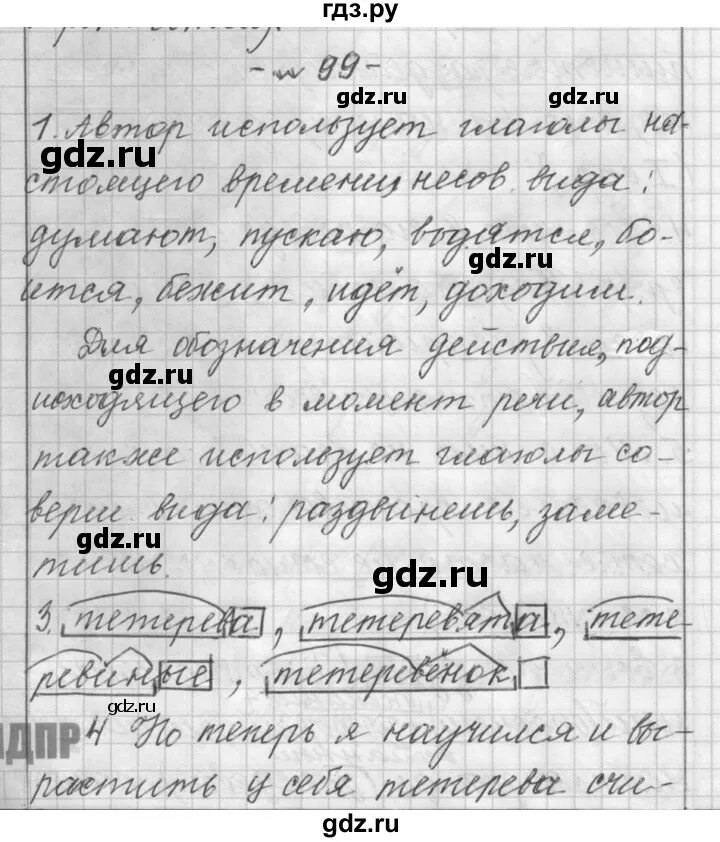 гдз.ру
- № 99 -
gdz.ru gdz.ru
1. Автор использует глаголы на-
gdz.ru
стоящего времени, несов. вида:
думают, пускаю, водятся, бо-
gdz.ru
ится, бежит, идёт, доходим.
Для обозначения действия, под-
gdz.ru
исходящего в момент речи, автор
также использует глаголы со-
верш. вида: раздвинешь, заме-
gdz.ru
тишь.
gdz.ru
3. тетерева, тетеревята, тете-
ревиные, тетеревёнок
gdz.ru
4 Но теперь я научился и вы-
растить у себя тетерева счи-
gdz.ru